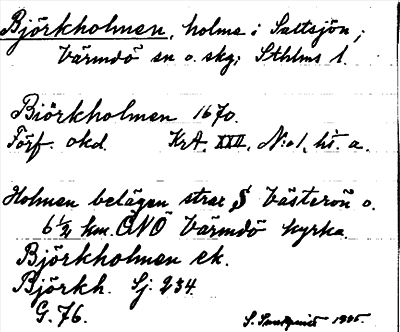 Björkholmen, holme i Saltsjön,
Värmdö sn o. skg; Sthlms l.
Biörkholmen 1670.
Förf. okd. KrA. XXII, N:o1, ht. a.
Holmen belägen strax S Västerön o.
6½ km. ONO Värmdö kyrka.
Björkholmen ek.
Björkh. Sj. 234
G. 76.
S. 1935.